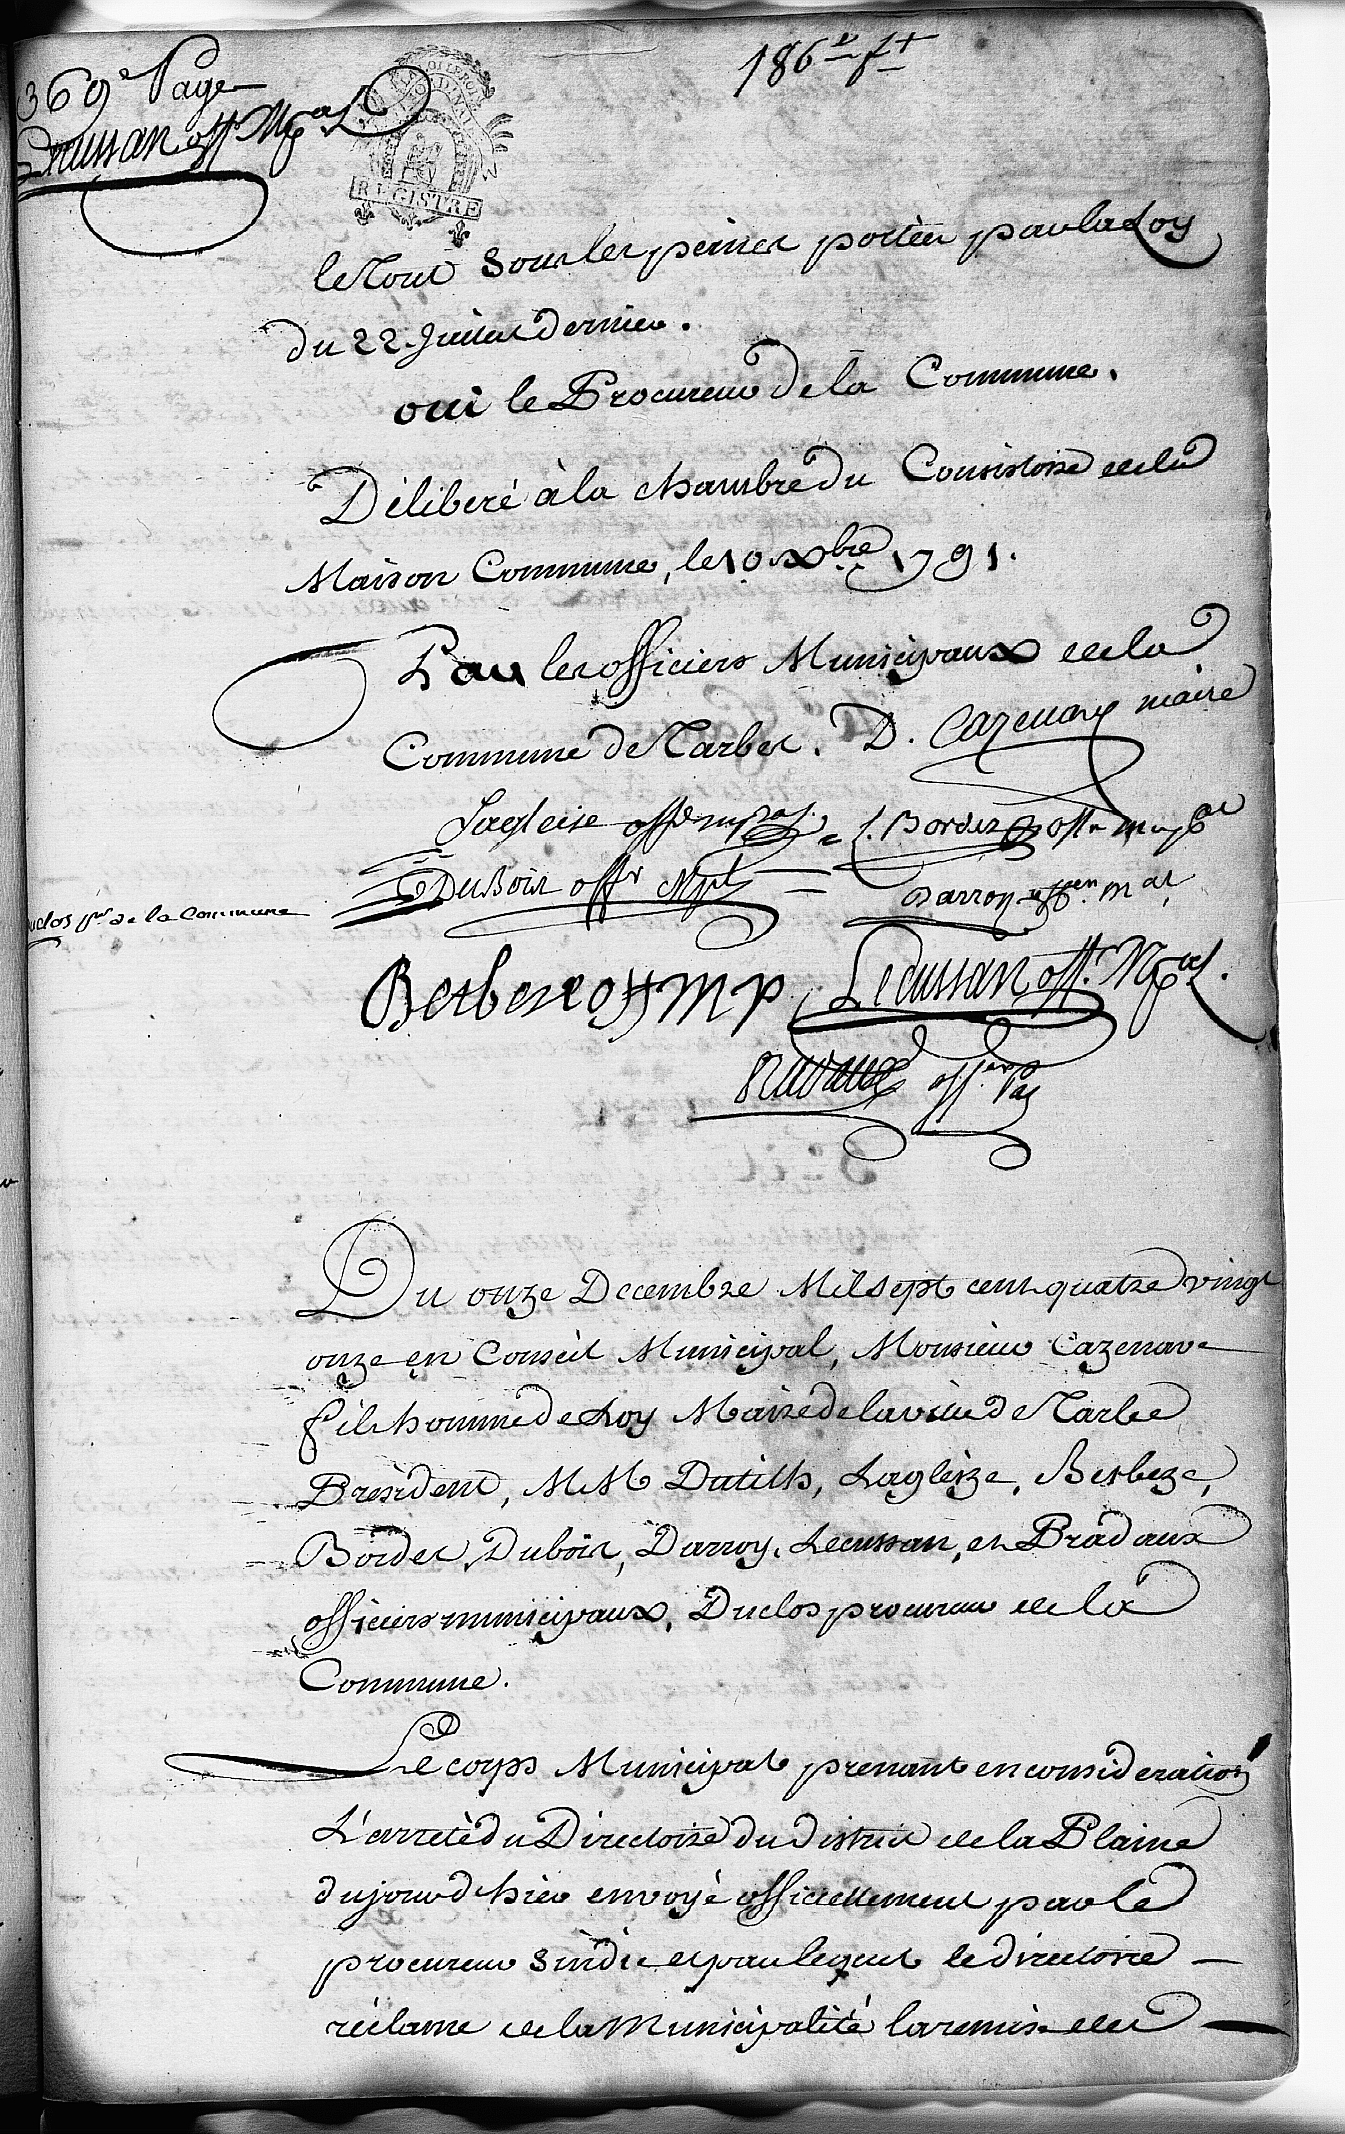 369e Page
Lecussan off. Mpal
186e ft
REGISTRE
le Tout sous les peines portées par la Loy
du 22 Juillet dernier.
oui le Procureur de la Commune.
Déliberé à la chambre du Consistoire de la
Maison Commune, le 10 Xbre 1791.
Par les officiers Municipaux de la
Commune de Tarbes. D. Cazenave maire
Lagleise offr mpal. J. Bordes offr mpal
Dubois offr Mpl Darroy offen. mal
Duclos pr. de la Commune
Berbeze off m p Lecussan off. Mpal.
Off.er
Du onze Decembre Mil sept cent quatre vingt
onze en Conseil Municipal, Monsieur Cazenave
fils homme de Loy Maire de la ville de Tarbe
Président, MM Dutilh, Lagleize, Berbeze,
Bordes, Dubois, Darroy, Lecussan, et Pradaux
officiers municipaux, Duclos procureur de la
Commune.
Le corps Municipal prenant en consideration
L'arreté du Directoire du district de la Plaine
du jour d'hier envoyé officiellement par le
procureur sindic et par lequel le directoire
réclame de la Municipalité la remise des